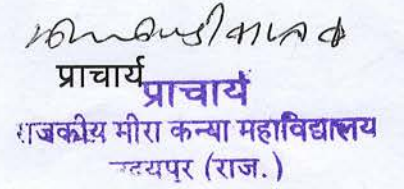 प्राचार्य
प्राचार्य
राजकीय मीरा कन्या महाविद्यालय
उदयपुर (राज.)